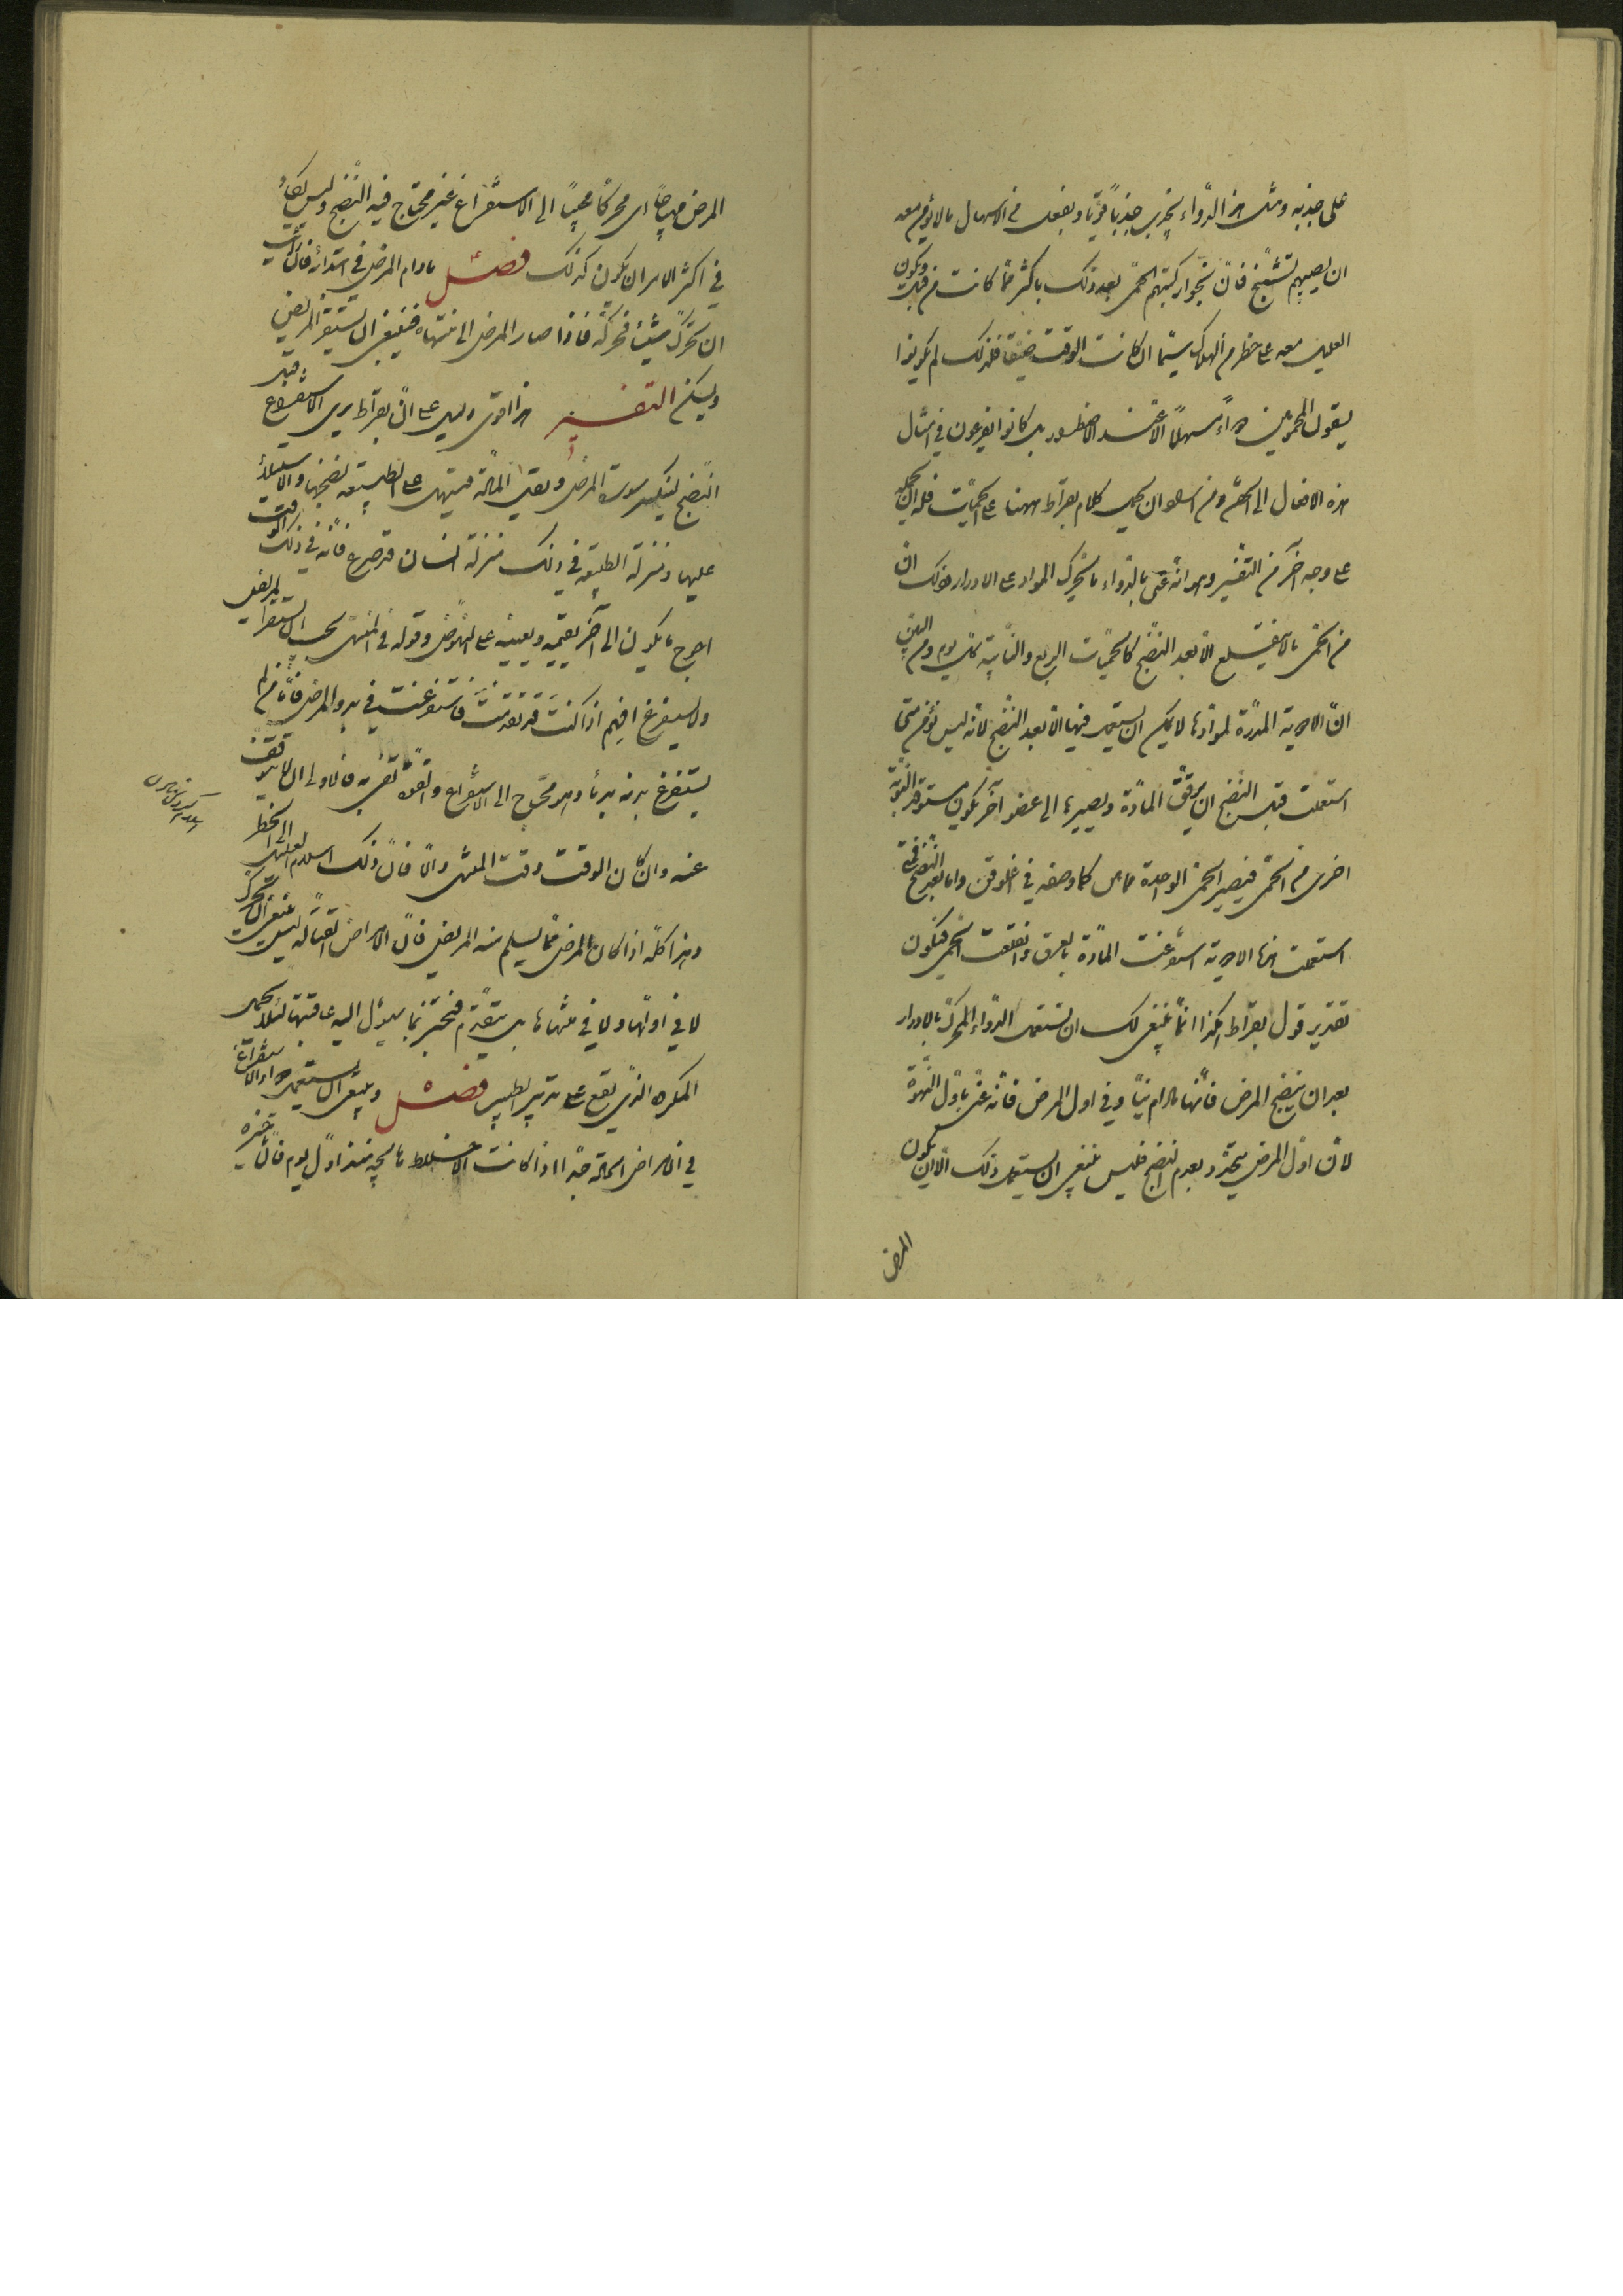 على جذبه ومثل هذا الدواء يجذب جذبا قويا ويفعل من الاسهال مالا يؤمن معه
ان يصيبهم تشنج فان نجوا ركبتهم الحمى بعد ذلك باكثر مما كانت من قبل ويكون
العليل معه على خطر من الهلاك سيما ان كانت الوقت ضيقا فلذلك لم يكونوا
يسقون المحمومين دواء مسهلا الا عند الاضطرار بل كانوا يفزعون في امثال
هذه الاحوال الى الحقن ومن اسلم ان يحمل كلام بقراط ههنا على الحميات فله ان يحمله
على وجه آخر من التفسير وهو انه عنى بالدواء ما يحرك المواد على الادرار وذلك ان
من الحمى مالا ينقلع الا بعد النضج كالحميات الربع والنائبة كل يوم ومن البين
ان الادوية المدرة لموادها لا يمكن ان يستعمل فيها الا بعد النضج لانه ليس نؤمن متى
استعملت قبل النضج ان يرقق المادة ويصيرها الى عضو آخر يكون مستوقد النوبة
اخرى من الحمى فيصير الحمى الواحدة حماتين كما وصفه في اغلوقن واما بعد النضج فمتى
استعملت هذه الادوية استفرغت المادة بالعرق وانقلعت الحمى فيكون
تقدير قول بقراط هكذا انما ينبغي لك ان تستعمل الدواء المحرك بالادرار
بعد ان ينضج المرض فاما مادام نيا وفي اول المرض فانه عنى باول النهوة
لان اول المرض يتحدد بعدم النضج فليس ينبغي ان يستعمل ذلك الا ان يكون
المرض
المرض مهياجا اى محركا محثيا الى الاستفراغ غير محتاج فيه النضج وليس يكاد
في اكثر الامر ان يكون كذلك فصل مادام المرض في ابتدائه فان رأيت
ان تحرك شيئا فحركه فاذا صار المرض الى منتهاه فينبغي ان يستقر المريض
ويسكن التفسير هذا اقوى دليل على ان بقراط يرى الاستفراغ قبل
النضج لينكسر سورة المرض ويقل المادة فيتسهل على الطبيعة نضجها والاستيلاء
عليها ومنزلة الطبيعة في ذلك منزلة انسان قد صرع فانه في ذلك الوقت
احوج ما يكون الى آخر يقيمه ويعينه على النهوض وقوله في المنتهى يجب ان يستقر المريض
ولا يستفرغ افهم اذا كنت قد تقدمت فاستفرغت في بدو المرض فاما من لم
يستفرغ بدنه بدئا وهو محتاج الى الاستفراغ والقوة تفي به فالاولى ان لا يتوقف
عنه وان كان الوقت وقت المنتهى والا فان ذلك اسلام العليل الى الخطر
وهذا كله اذا كان المرض مما يسلم منه المريض فان الامراض القتالة ليس ينبغي ان تحرك
لا في اولها ولا في منتهاها بل يتقدم فتخبر بما يؤل اليه عاقبتها لئلا يحمل
المكروه الذي يقع على تدبير الطبيب فصل وينبغي ان يستعمل دواء الاستفراغ
في الامراض الحادة جدا اذا كانت الاخلاط هائجة منذ اول يوم فان تأخيره